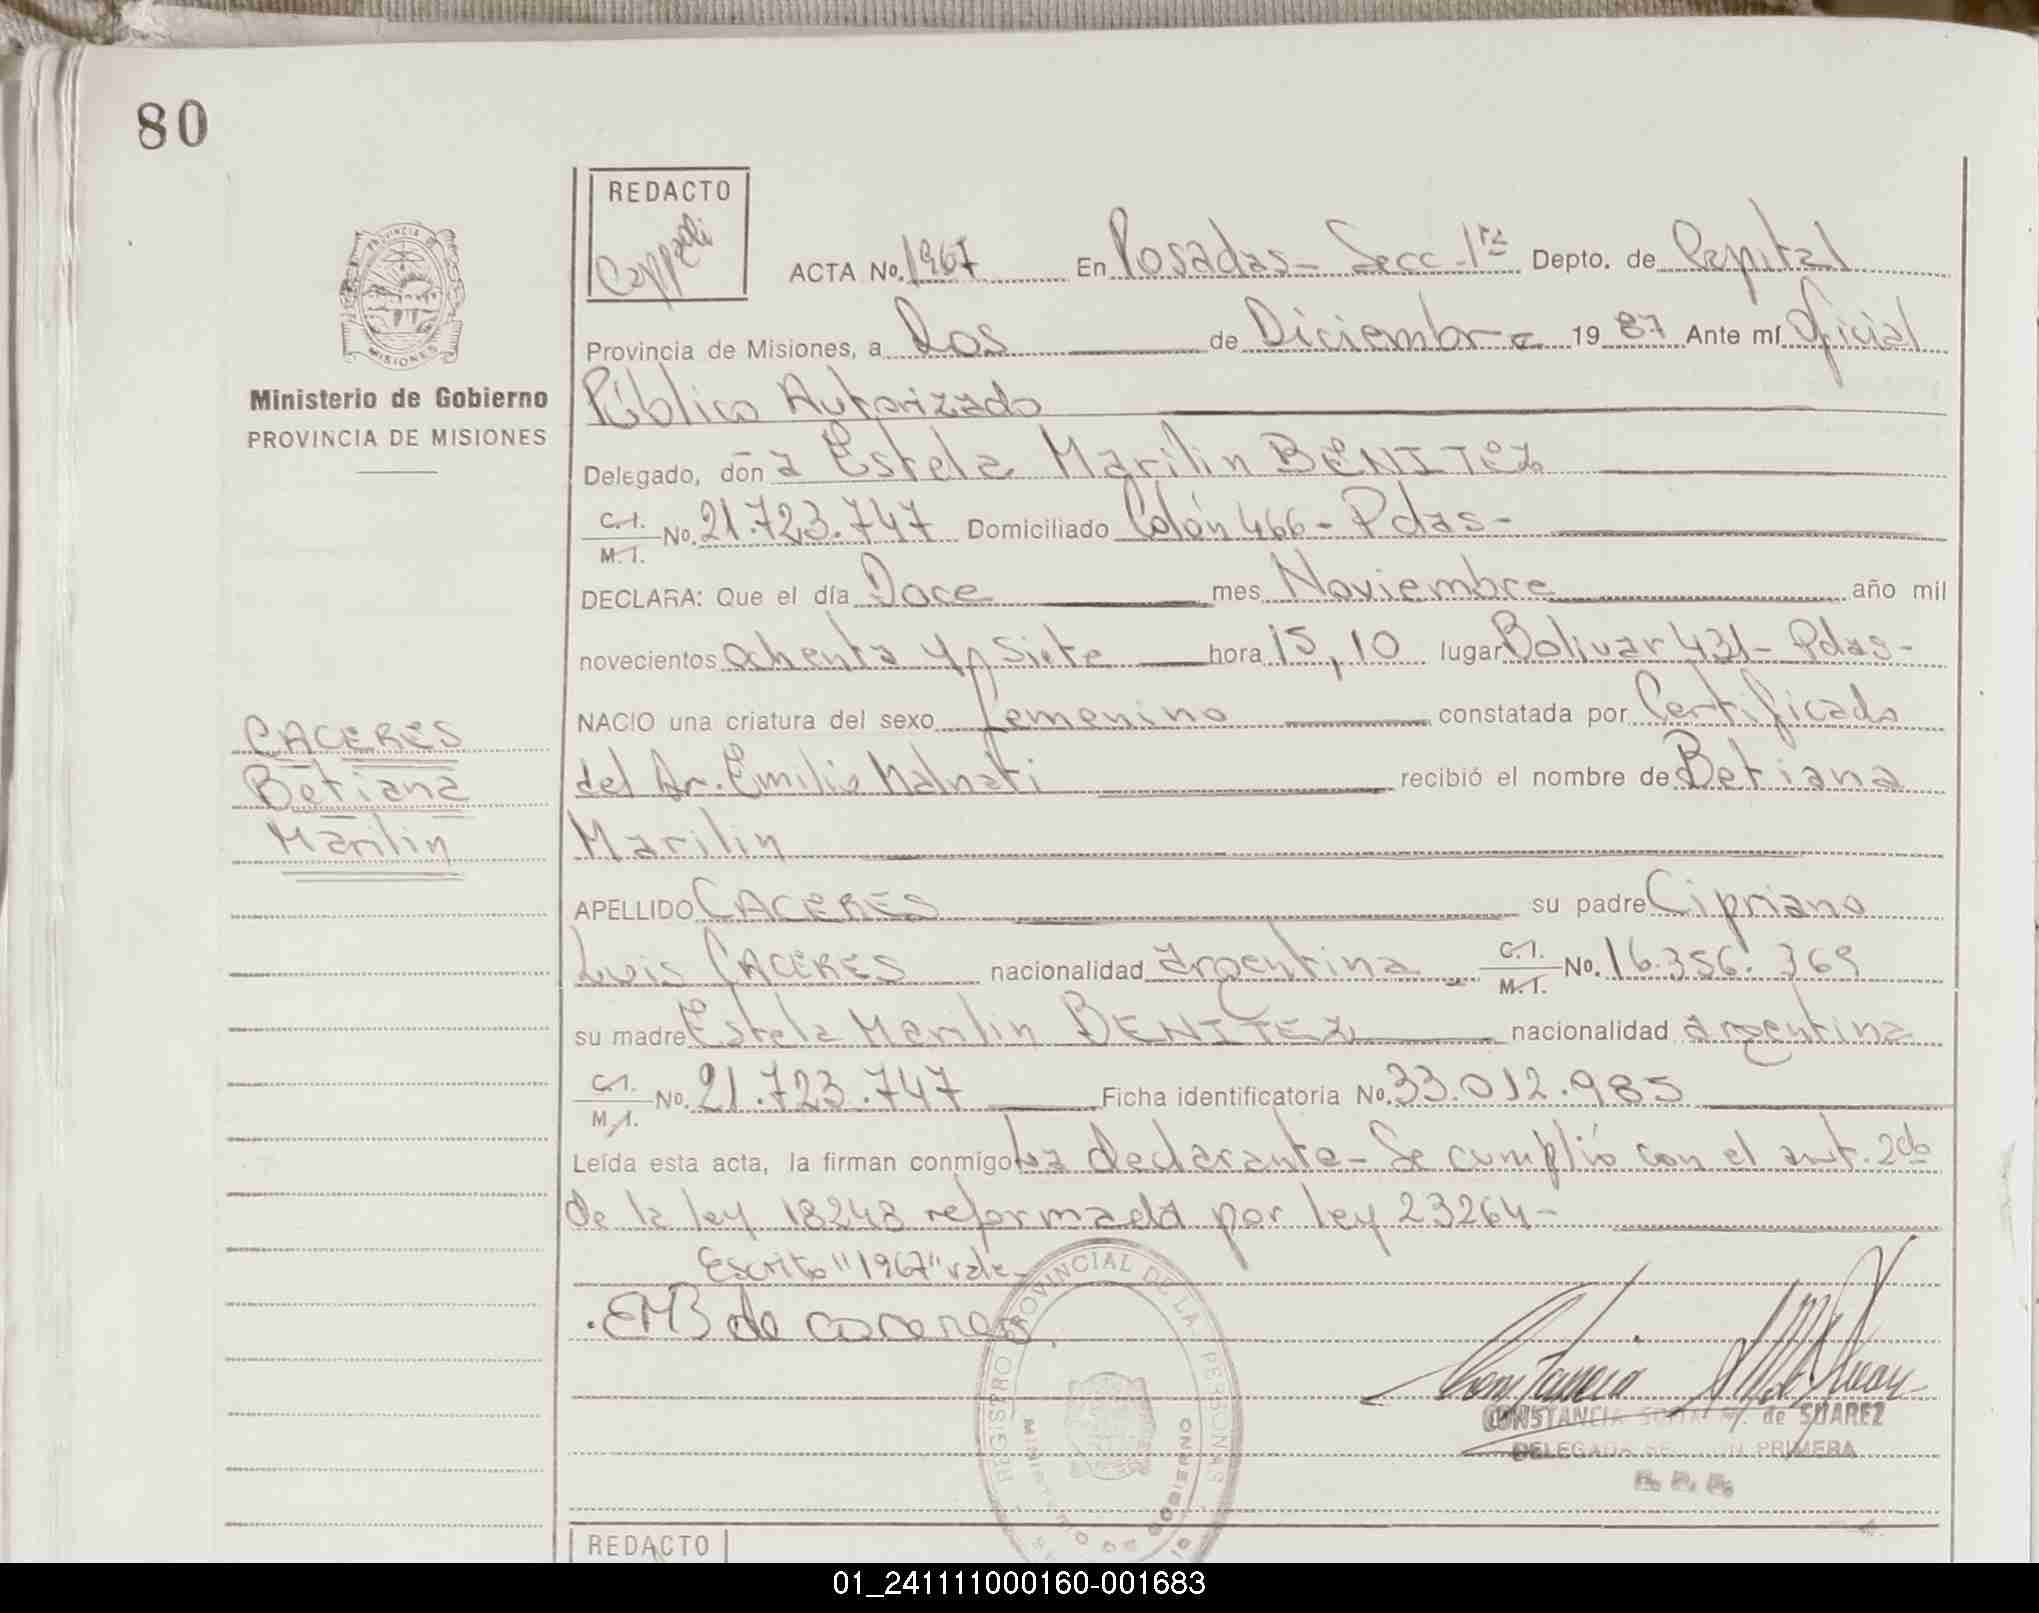 80
REDACTO
Cappelli
ACTA No. 1967 En Posadas - Secc - 1ra Depto. de Capital
PROVINCIA DE
MISIONES
Provincia de Misiones, a Dos de Diciembre 1987 Ante mí Oficial
Ministerio de Gobierno
PROVINCIA DE MISIONES
Público Autorizado
Delegado, doña Estela Marilin BENITEZ
C.I. M.I. No. 21.723.747 Domiciliado Colón 466 - Pdas -
DECLARA: Que el día Doce mes Noviembre año mil
novecientos ochenta y siete hora 15,10 lugar Bolivar 431 - Pdas -
NACIO una criatura del sexo femenino constatada por Certificado
CACERES
Betiana
Marilin
del Dr. Emilio Malnati recibió el nombre de Betiana
Marilin
APELLIDO CACERES su padre Cipriano
Luis CACERES nacionalidad argentina C.I. M.I. No. 16.356.369
su madre Estela Marilin BENITEZ nacionalidad argentina
C.I. M.I. No. 21.723.747 Ficha identificatoria No. 33.012.985
Leída esta acta, la firman conmigo la declarante - Se cumplió con el art. 2do
de la ley 18248 reformada por ley 23264 -
Escrito "1967" vale -
EMB de caceres
REGISTRO PROVINCIAL DE LA PERSONAS
MINISTERIO DE GOBIERNO
CONSTANCIA de SUAREZ
DELEGADA SECCION PRIMERA
REDACTO
01_241111000160-001683